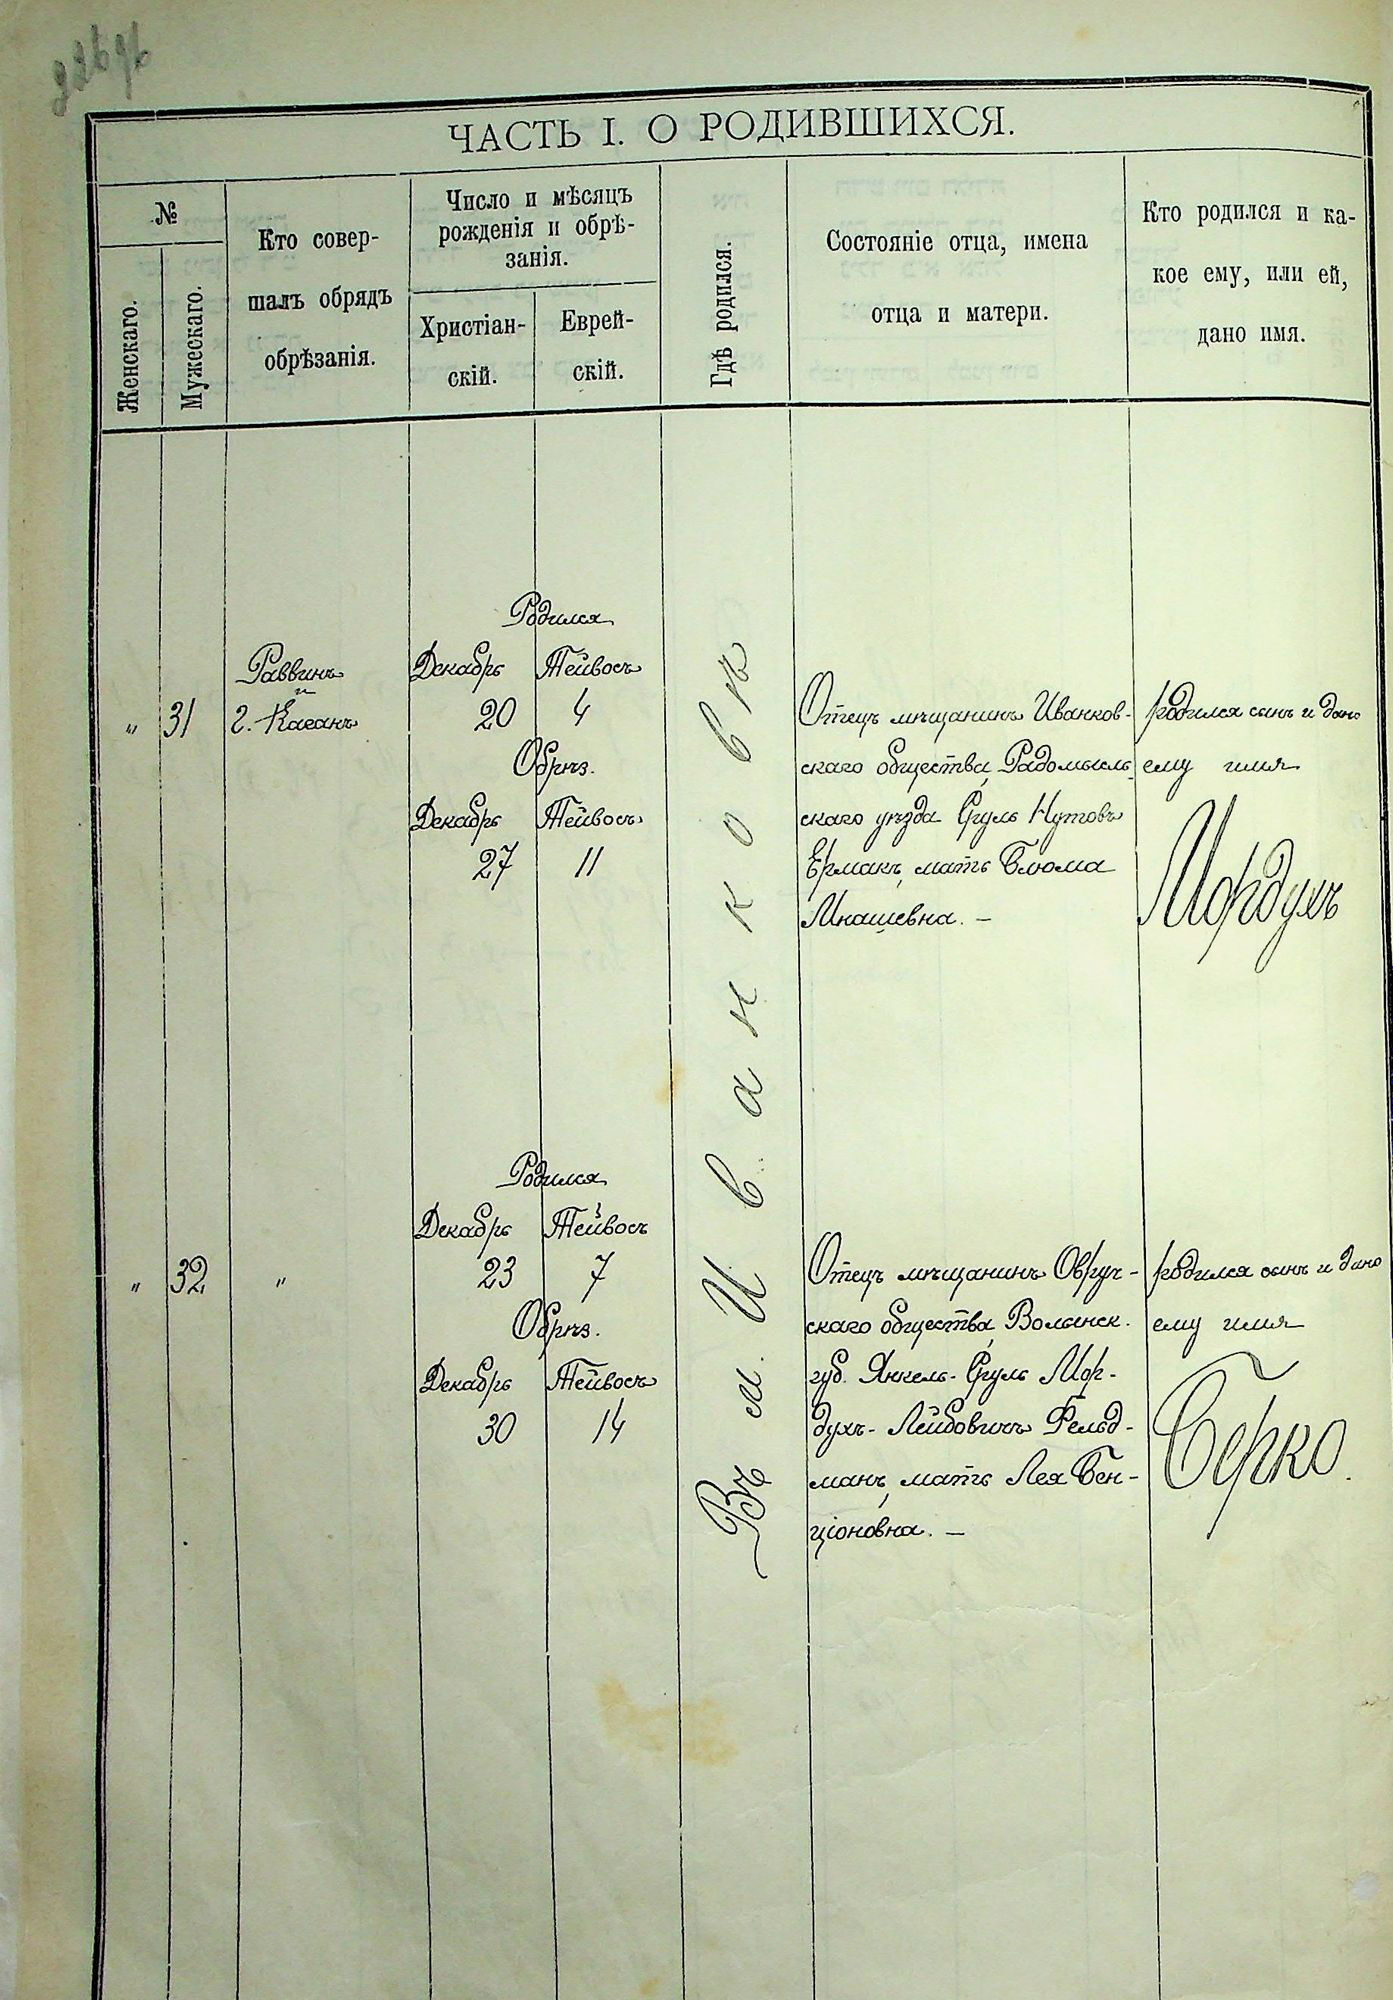 ЧАСТЬ I. О РОДИВШИХСЯ.
№
Женскаго.
Мужескаго.
Кто совер-
шалъ обрядъ
обрѣзанія.
Число и мѣсяцъ
рожденія и обрѣ-
занія.
Христіан-
скій.
Еврей-
скій.
Гдѣ родился.
Состояніе отца, имена
отца и матери.
Кто родился и ка-
кое ему, или ей,
дано имя.
Въ м. Иванковѣ
„ 31
Раввинъ
Г. Каганъ
Родился
Декабрь Тейвосъ
20 4
Обрѣз.
Декабрь Тейвосъ
27 11
Отецъ мѣщанинъ Иванков-
скаго общества, Радомысль-
скаго уѣзда Сруль Нутовъ
Ермакъ, мать Блюма
Мнашевна. —
родился сынъ и дано
ему имя
Мордухъ
„ 32 „
Родился
Декабрь Тейвосъ
23 7
Обрѣз.
Декабрь Тейвосъ
30 14
Отецъ мѣщанинъ Овруч-
скаго общества, Волынск.
губ. Янкель-Сруль Мор-
духъ-Лейбовичъ Фельд-
манъ, мать Лея Бен-
ціоновна. —
родился сынъ и дано
ему имя
Берко.